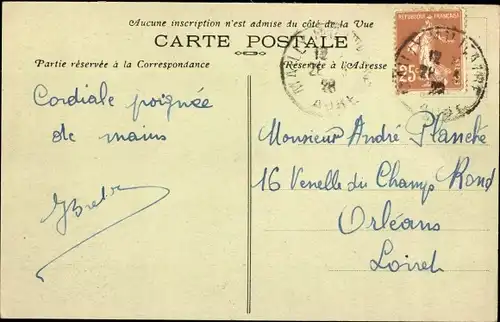 Aucune inscription n'est admise du côté de la Vue
CARTE POSTALE
Partie réservée à la Correspondance
Réservée à l'Adresse
RÉPUBLIQUE FRANÇAISE
25
Cordiale poignée
de mains
Monsieur André Planché
16 Venelle du Champ Rond
Orléans
Loiret